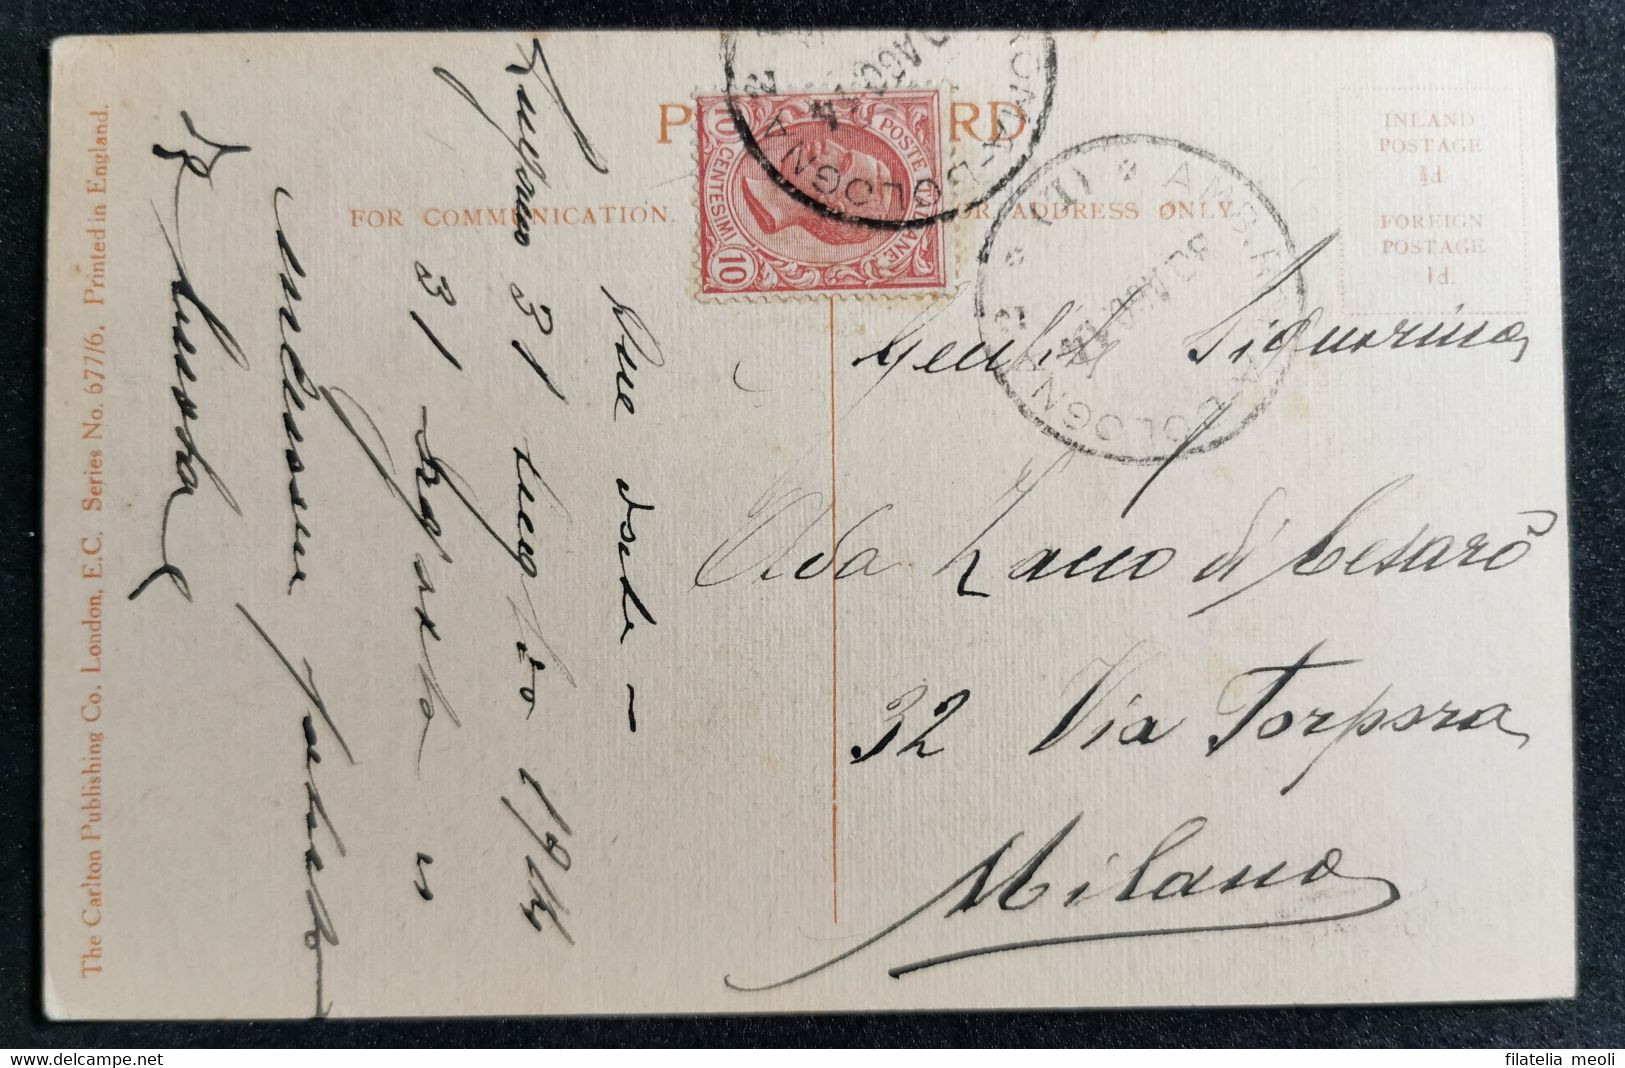 The Carlton Publishing Co. London, E.C. Series No. 677/6. Printed in England.
P RD
FOR COMMUNICATION.
OR ADDRESS ONLY
INLAND
POSTAGE
½d
FOREIGN
POSTAGE
1d.
POSTE ITALIANE
10 CENTESIMI 10
ROMA-BOLOGNA
AGO
AMB. ROMA BOLOGNA
30 AGO 14
(1)
Due date –
31 luglio 1914
31 Agosto
Gentile Signorina
Ada Zacco di Cesarò
32 Via Torpora
Milano
filatelia meoli